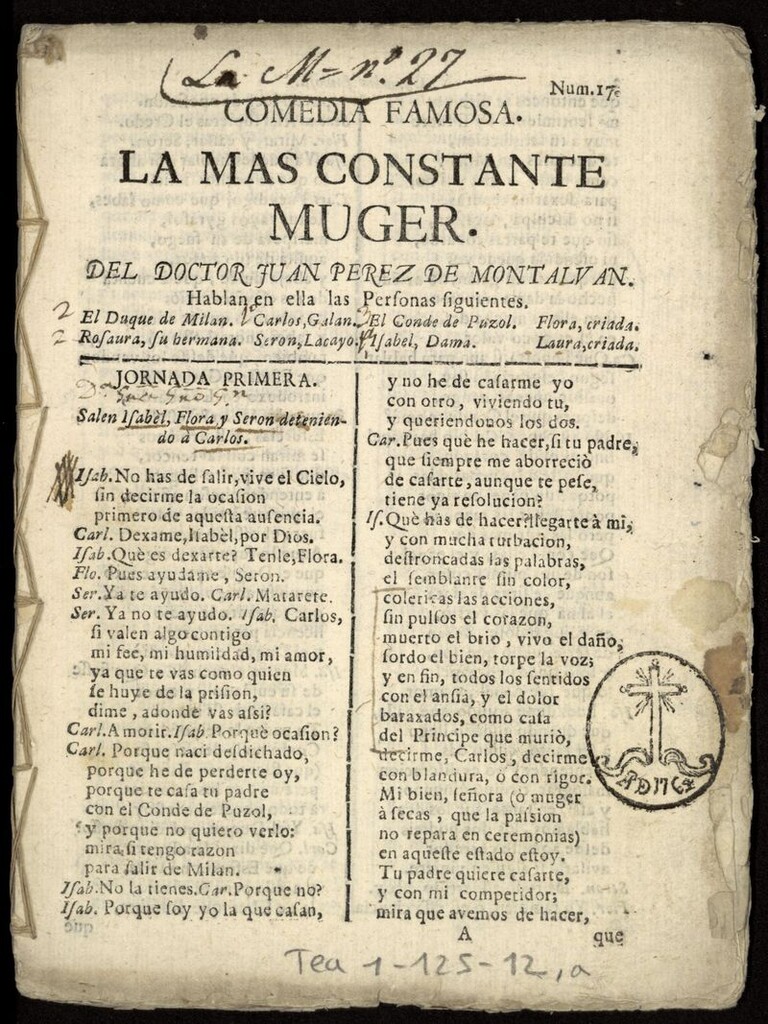 La M= nº. 27
Num. 17
COMEDIA FAMOSA.
LA MAS CONSTANTE
MUGER.
DEL DOCTOR JUAN PEREZ DE MONTALVAN.
Hablan en ella las Perſonas ſiguientes.
2 El Duque de Milan. Carlos, Galan. El Conde de Puzol. Flora, criada.
2 Roſaura, ſu hermana. Seron, Lacayo. Iſabel, Dama. Laura, criada.
JORNADA PRIMERA.
Salen Iſabèl, Flora y Seron detenien-
do à Carlos.
Iſab. No has de ſalir, vive el Cielo,
ſin decirme la ocaſion
primero de aqueſta auſencia.
Carl. Dexame, Iſabèl, por Dios.
Iſab. Què es dexarte? Tenle, Flora.
Flo. Pues ayudame, Seron.
Ser. Ya te ayudo. Carl. Matarete.
Ser. Ya no te ayudo. Iſab. Carlos,
ſi valen algo contigo
mi fee, mi humildad, mi amor,
ya que te vas como quien
ſe huye de la priſion,
dime, adonde vas aſsi?
Carl. A morir. Iſab. Porquè ocaſion?
Carl. Porque naci deſdichado,
porque he de perderte oy,
porque te caſa tu padre
con el Conde de Puzol,
y porque no quiero verlo:
mira ſi tengo razon
para ſalir de Milan.
Iſab. No la tienes. Car. Porque no?
Iſab. Porque ſoy yo la que caſan,
y no he de caſarme yo
con otro, viviendo tu,
y queriendonos los dos.
Car. Pues què he hacer, ſi tu padre,
que ſiempre me aborreciò
de caſarte, aunque te peſe,
tiene ya reſolucion?
Iſ. Què hàs de hacer? llegarte à mi,
y con mucha turbacion,
deſtroncadas las palabras,
el ſemblante ſin color,
colericas las acciones,
ſin pulſos el corazon,
muerto el brio, vivo el daño,
ſordo el bien, torpe la voz;
y en fin, todos los ſentidos
con el anſia, y el dolor
baraxados, como caſa
del Principe que muriò,
decirme, Carlos, decirme
con blandura, ò con rigor:
Mi bien, ſeñora (ò muger
à ſecas, que la paſsion
no repara en ceremonias)
en aqueſte eſtado eſtoy.
Tu padre quiere caſarte,
y con mi competidor;
mira que avemos de hacer,
A que
AD1764
Tea 1-125-12, a